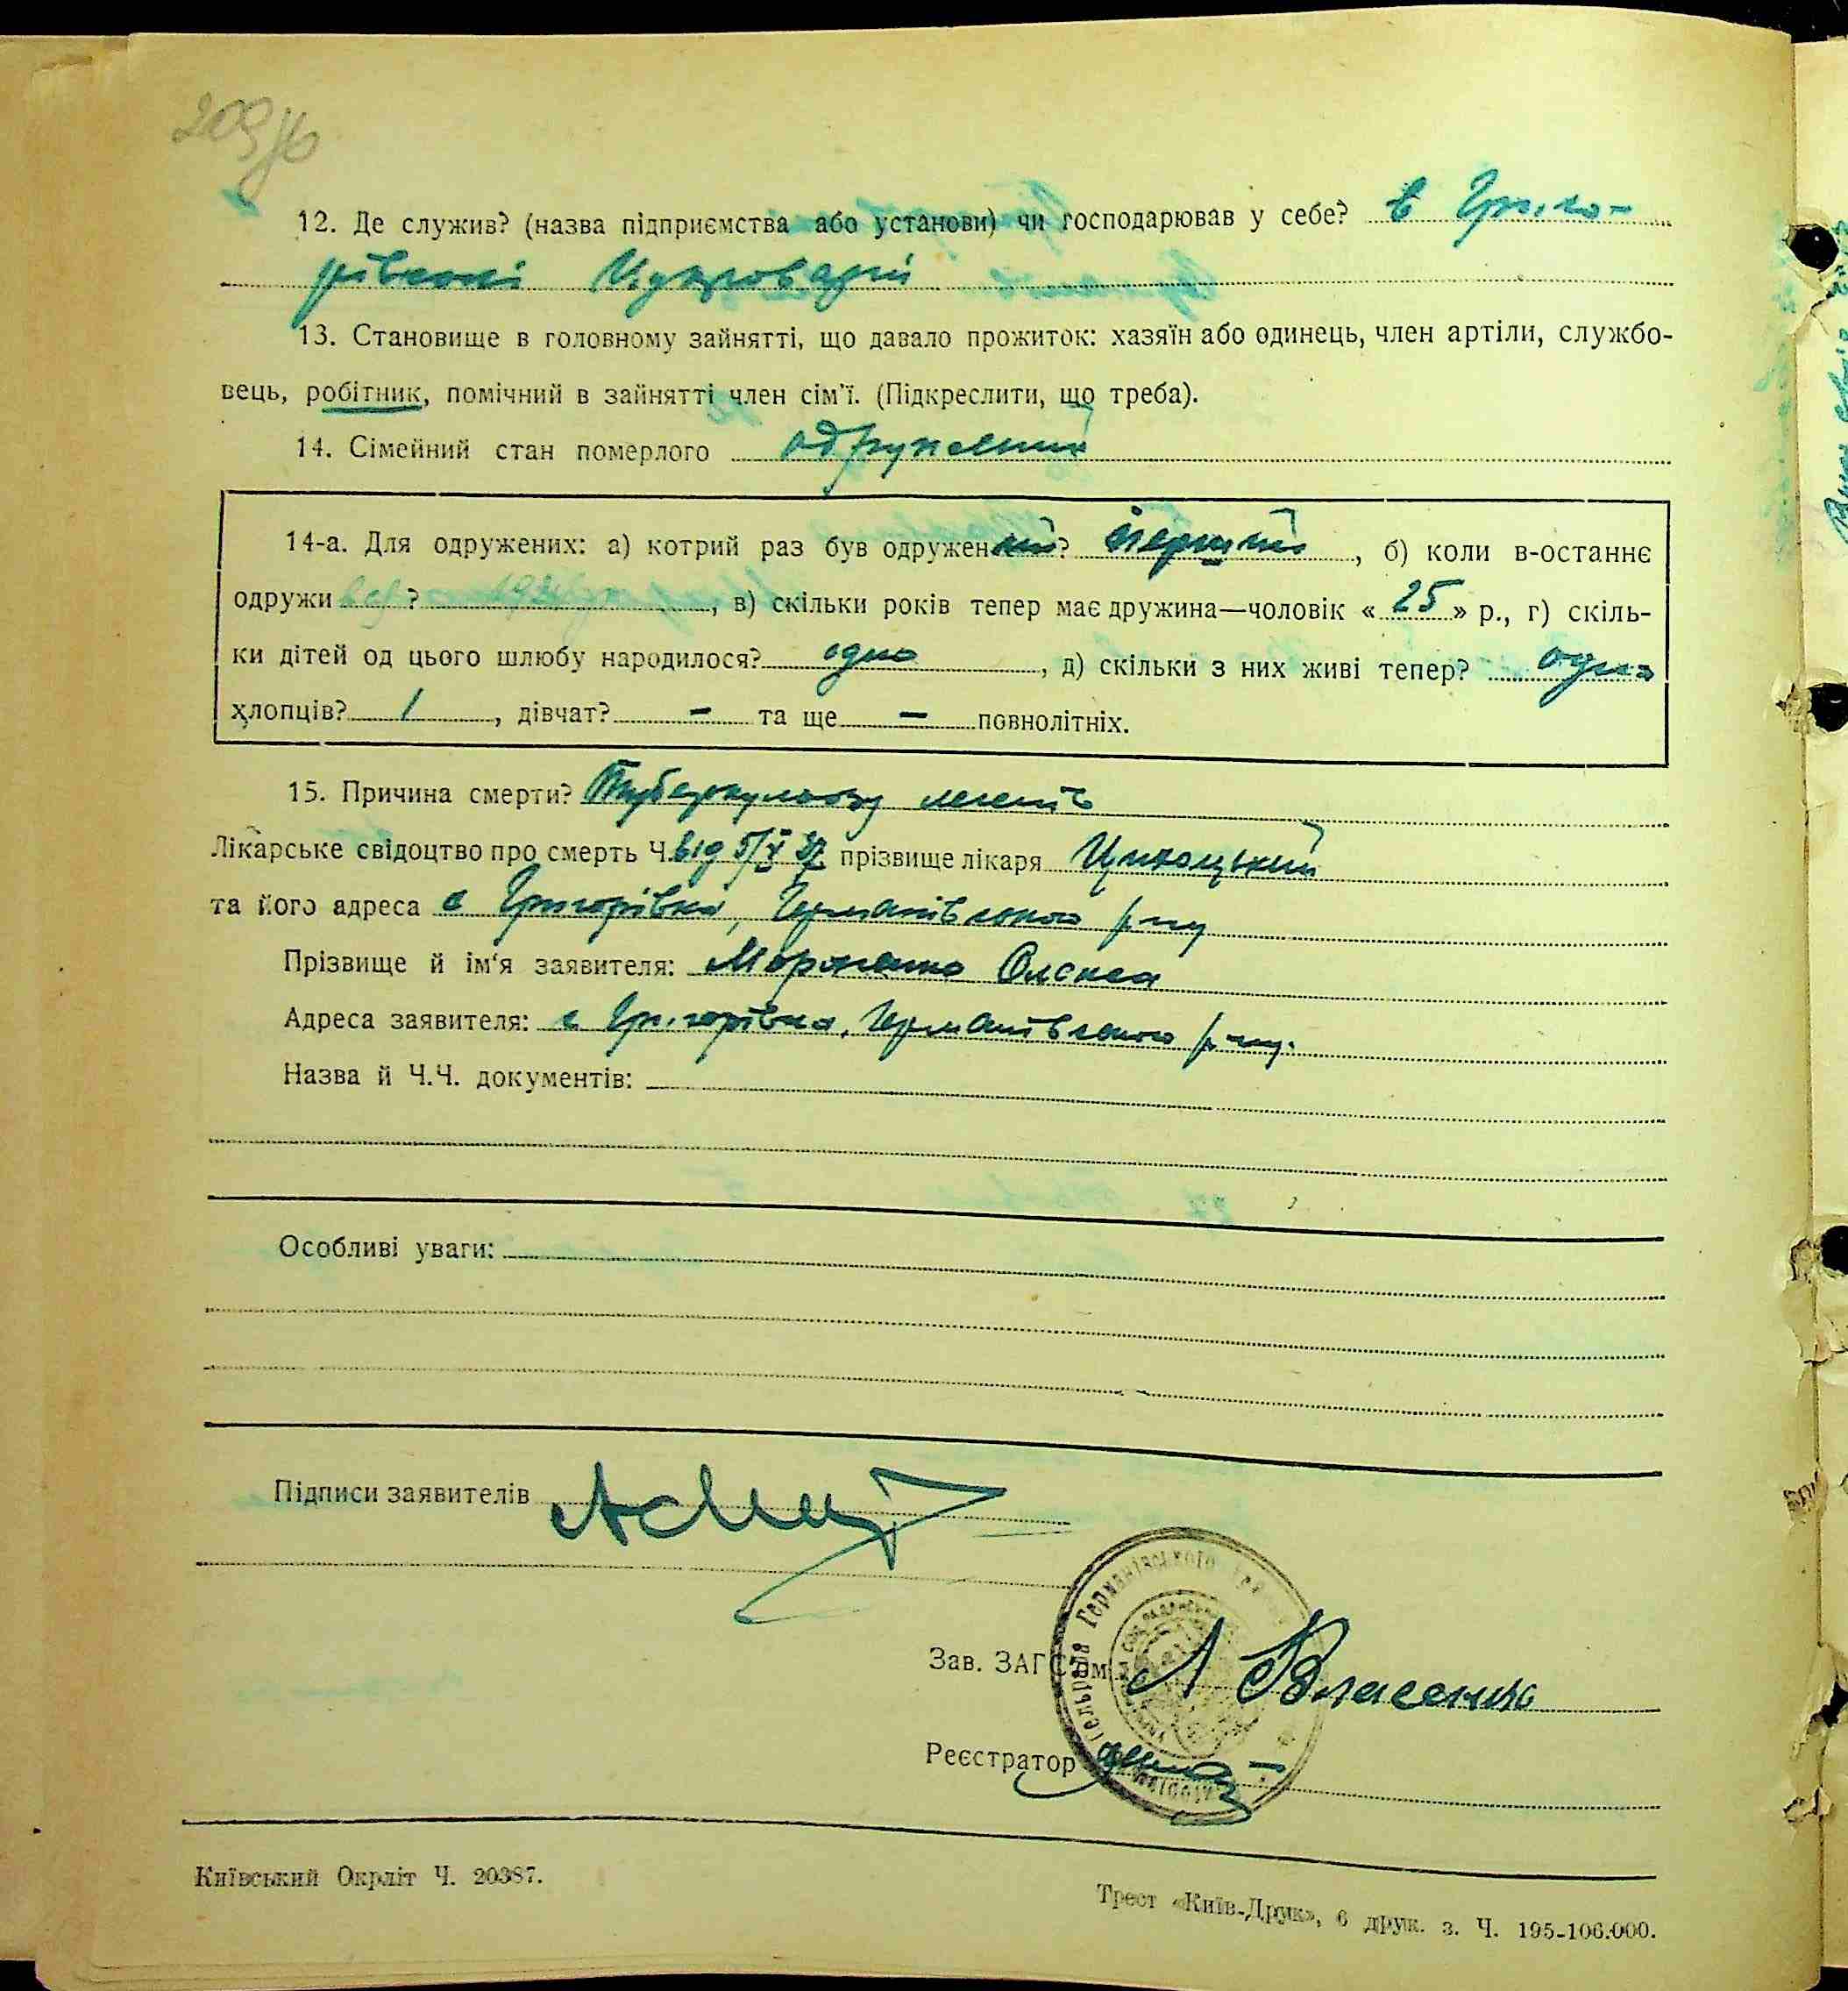 209
12. Де служив? (назва підприємства або установи) чи господарював у себе? в Григо-
рівські Цукроварні
13. Становище в головному зайнятті, що давало прожиток: хазяїн або одинець, член артіли, службо-
вець, робітник, помічний в зайнятті член сім'ї. (Підкреслити, що треба).
14. Сімейний стан померлого одружений
14-а. Для одружених: а) котрий раз був одружений? перший, б) коли в-останнє
одружи ?, в) скільки років тепер має дружина—чоловік «25» р., г) скіль-
ки дітей од цього шлюбу народилося? одно, д) скільки з них живі тепер? одно
хлопців? 1, дівчат? – та ще – повнолітніх.
15. Причина смерти? Туберкульоз легенів
Лікарське свідоцтво про смерть Ч. від 5/X прізвище лікаря
та його адреса с Григорівка, Германівського р-ну
Прізвище й ім'я заявителя: Олекса
Адреса заявителя: с Григорівка, Германівського р-ну.
Назва й Ч.Ч. документів:
Особливі уваги:
Підписи заявителів
Зав. ЗАГС'ом Л Власенко
Реєстратор
Германівського
Київський Окрліт Ч. 20387.
Трест «Київ-Друк», 6 друк. з. Ч. 195-106.000.